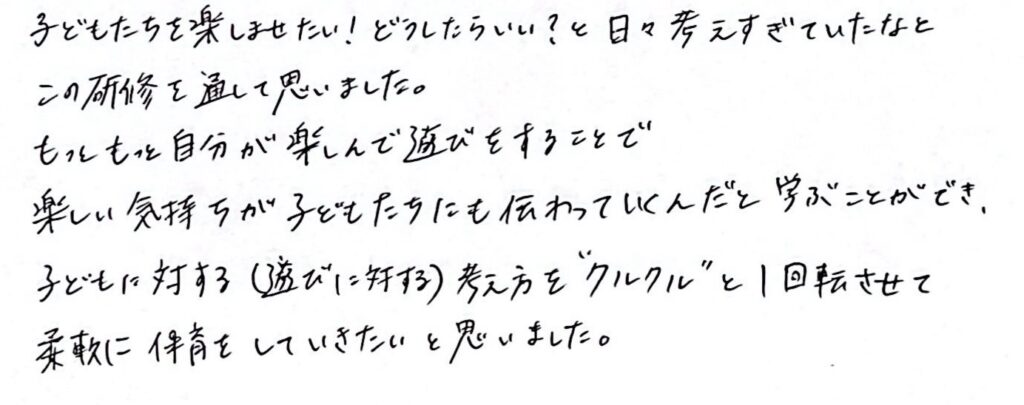 子どもたちを楽しませたい！どうしたらいい？と日々考えすぎていたなと
この研修を通して思いました。
もっともっと自分が楽しんで遊びをすることで
楽しい気持ちが子どもたちにも伝わっていくんだと学ぶことができ、
子どもに対する(遊びに対する)考え方を"クルクル"と1回転させて
柔軟に保育をしていきたいと思いました。